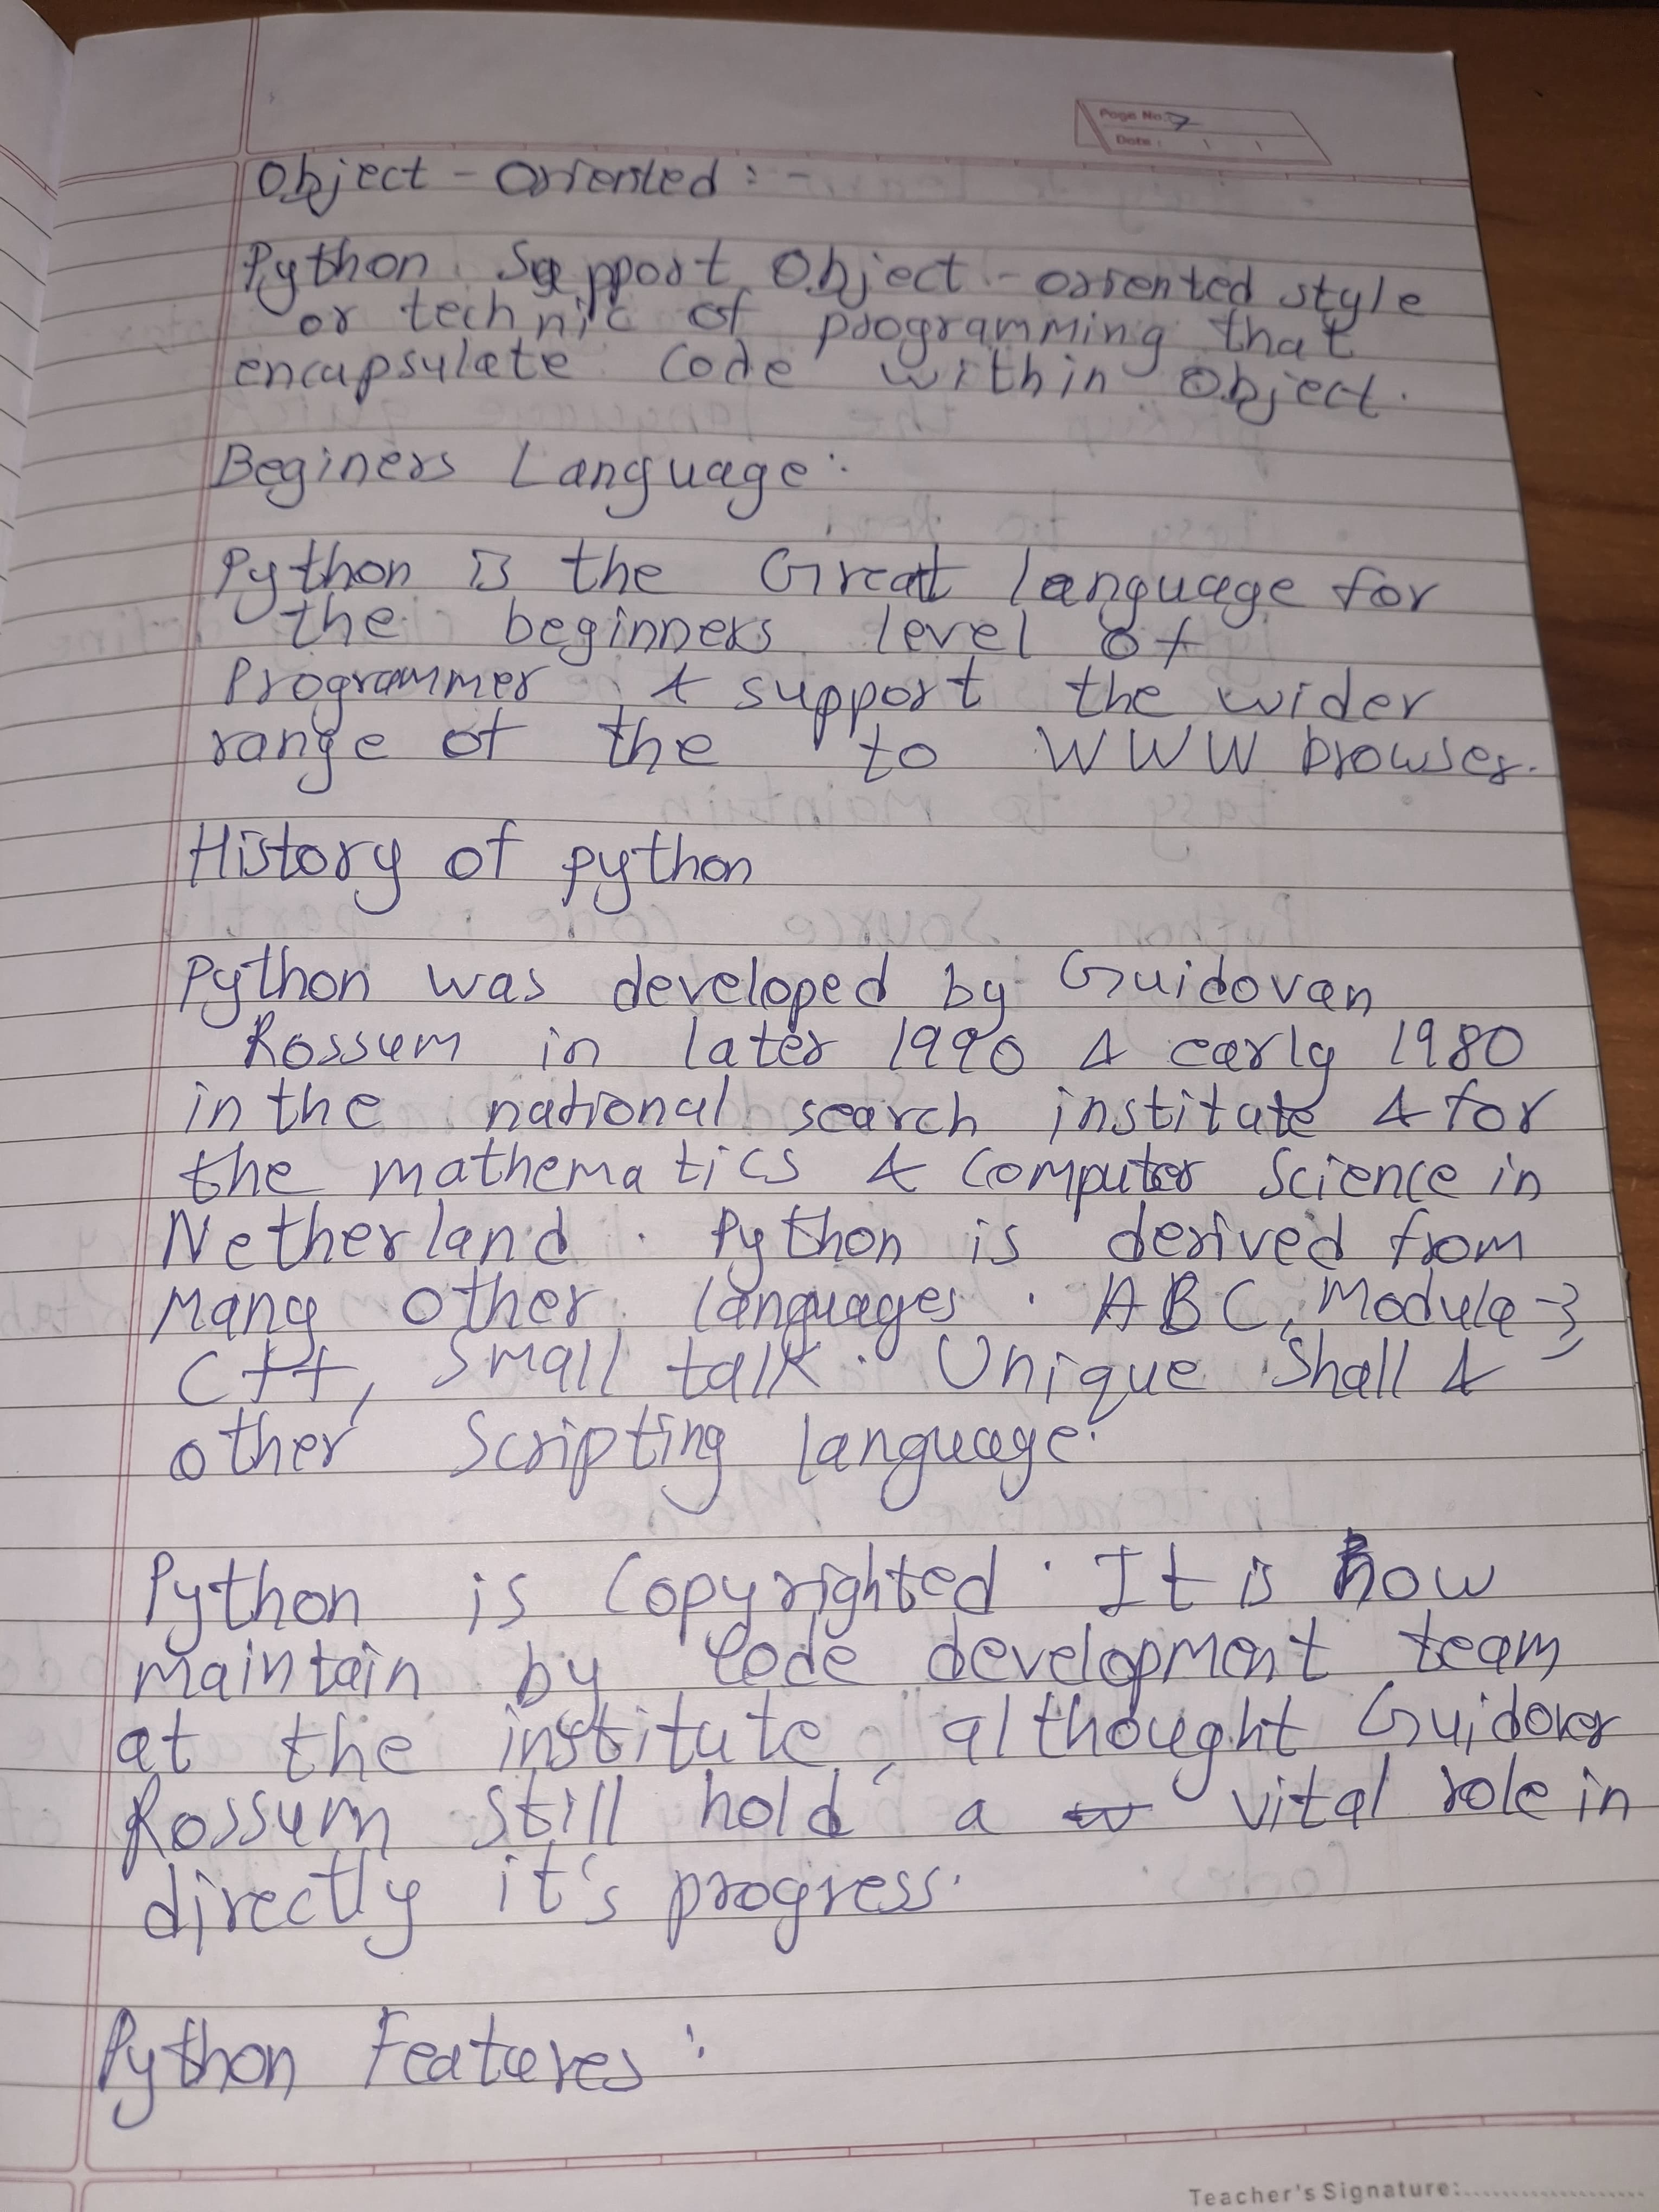 Page No: 7
Date :
Object - oriented : -
Python Support Object - oriented style
or technic of programming that
encapsulate code within Object.
Beginers Language :
Python is the Great language for
the beginners level of
Programmer & support the wider
range of the to WWW browser.
History of python
Python was developed by Guidovan
Rossum in later 1990 & early 1980
in the national search institute & for
the mathematics & Computer Science in
Netherland . Python is derived from
Many other languages . ABC, Modula-3,
C++, Small talk . Unique Shall &
other Scripting language.
Python is Copyrighted . It is now
maintain by Code development team
at the institute, althought Guidover
Rossum still hold a vital role in
directly it's progress.
Python Features :
Teacher's Signature: